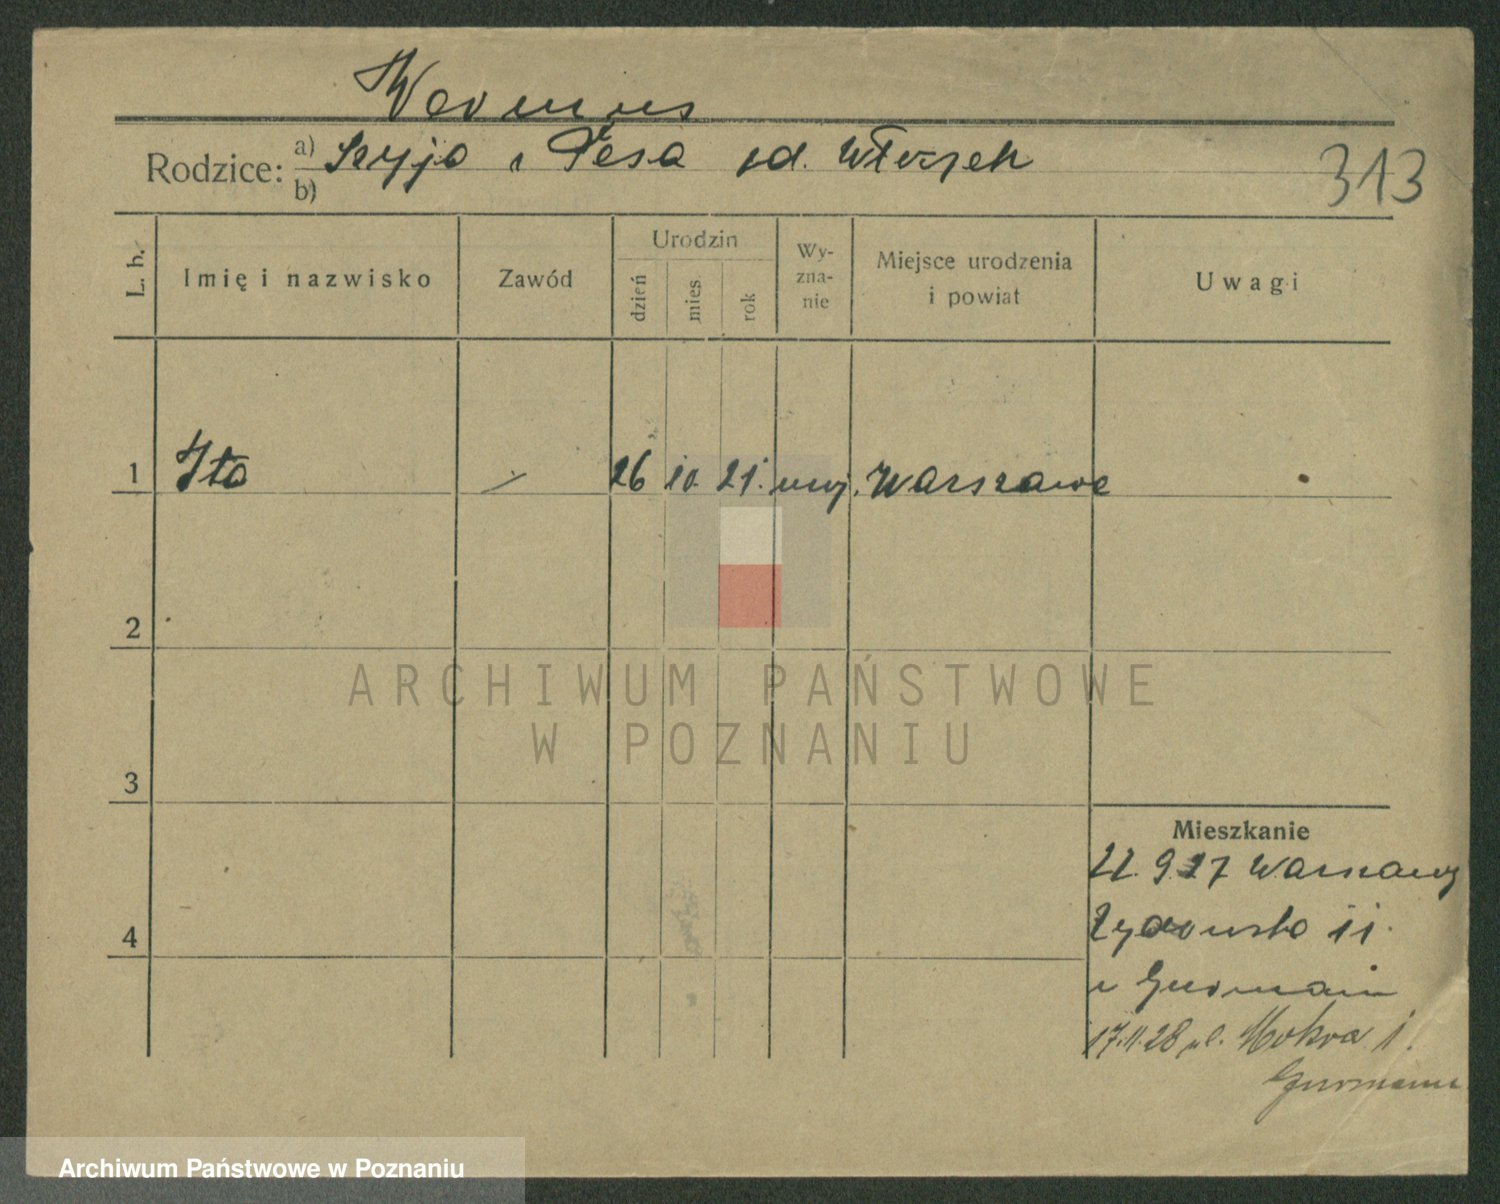 Rodzice: a) Szyja i Pesa
b)
313
L. b.
Imię i nazwisko
Zawód
Urodzin
dzień
mies.
rok
Wy-
zna-
nie
Miejsce urodzenia
i powiat
Uwagi
1 Ita 26 10. 21. mojż. Warszawa
2
3
4
Mieszkanie
22. 9. 27 Warszawy
Żydowska 11.
17.11.28 ul. Mokra 1.
ARCHIWUM PAŃSTWOWE
W POZNANIU
Archiwum Państwowe w Poznaniu